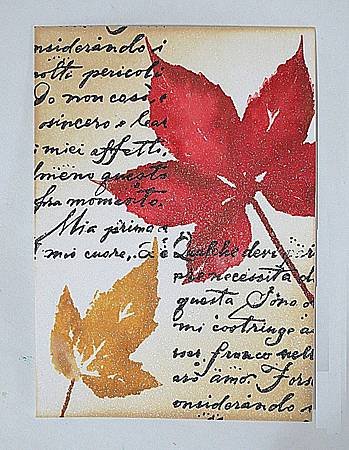 nsiderando i
olte pericoli
do non cass è
sincero e lea
i miei affetti.
lmeno questo
fra momento.
Mia prima d
mi cuore,
è Qualche devi
per necessita d
questa Sono
mi costringe a
franco nel
amo. Fors
onsiderando